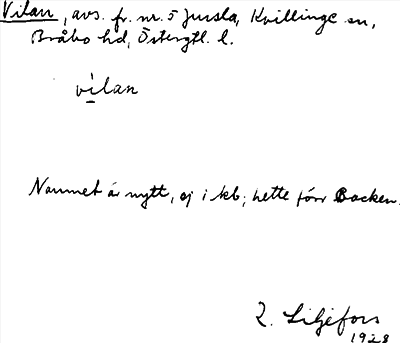 Vilan, avs. fr. nr. 5 Jursla, Kvillinge sn,
Bråbo hd, Östergtl. l.
vilan
Namnet är nytt, ej i kb; hette förr Backen.
Z. Liljefors
1928